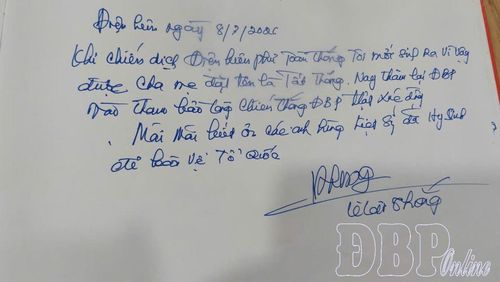 Điện biên ngày 8/7/2026
Khi chiến dịch Điện biên phủ Toàn thắng Tôi mới sinh ra vì vậy
được cha mẹ đặt tên là Tất Thắng. Nay thăm lại ĐBP
vào tham bảo tàng Chiến thắng ĐBP thật xúc động
. Mãi mãi biết ơn các anh hùng liệt sỹ đã hy sinh
để bảo vệ Tổ Quốc
Thắng
ĐBP
Online